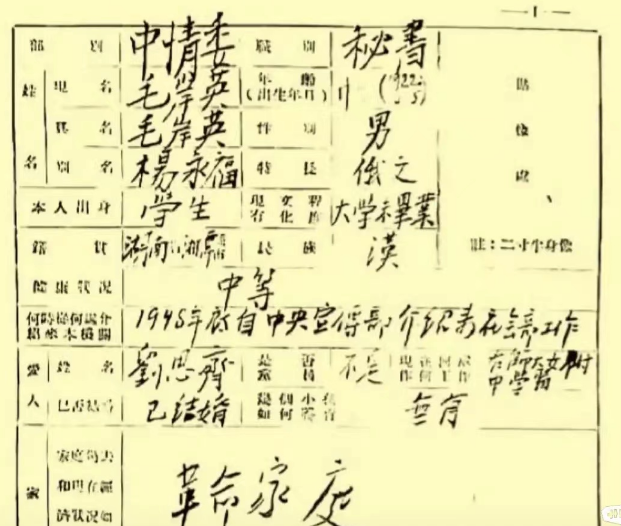 — 1 —
部別 中情委 職別 秘書
姓名 現名 毛岸英 年齡(出生年月) (1922)
真名 毛岸英 性別 男 貼像處
別名 楊永福 特長 俄文
本人出身 學生 現有文化程度 大学未畢業
籍貫 湖南湘 民族 漢 註：二寸半身像
健康狀況 中等
何時從何處介紹來本機關 1948年底自中央宣傳部介紹來在會部工作
愛人 姓名 劉思齊 是否黨員 不是 現在何處作何工作 師大女附中學習
已否結婚 已結婚 是否有幾個小孩如何養育 無有
家 家庭過去和現在經濟狀況如 革命家庭